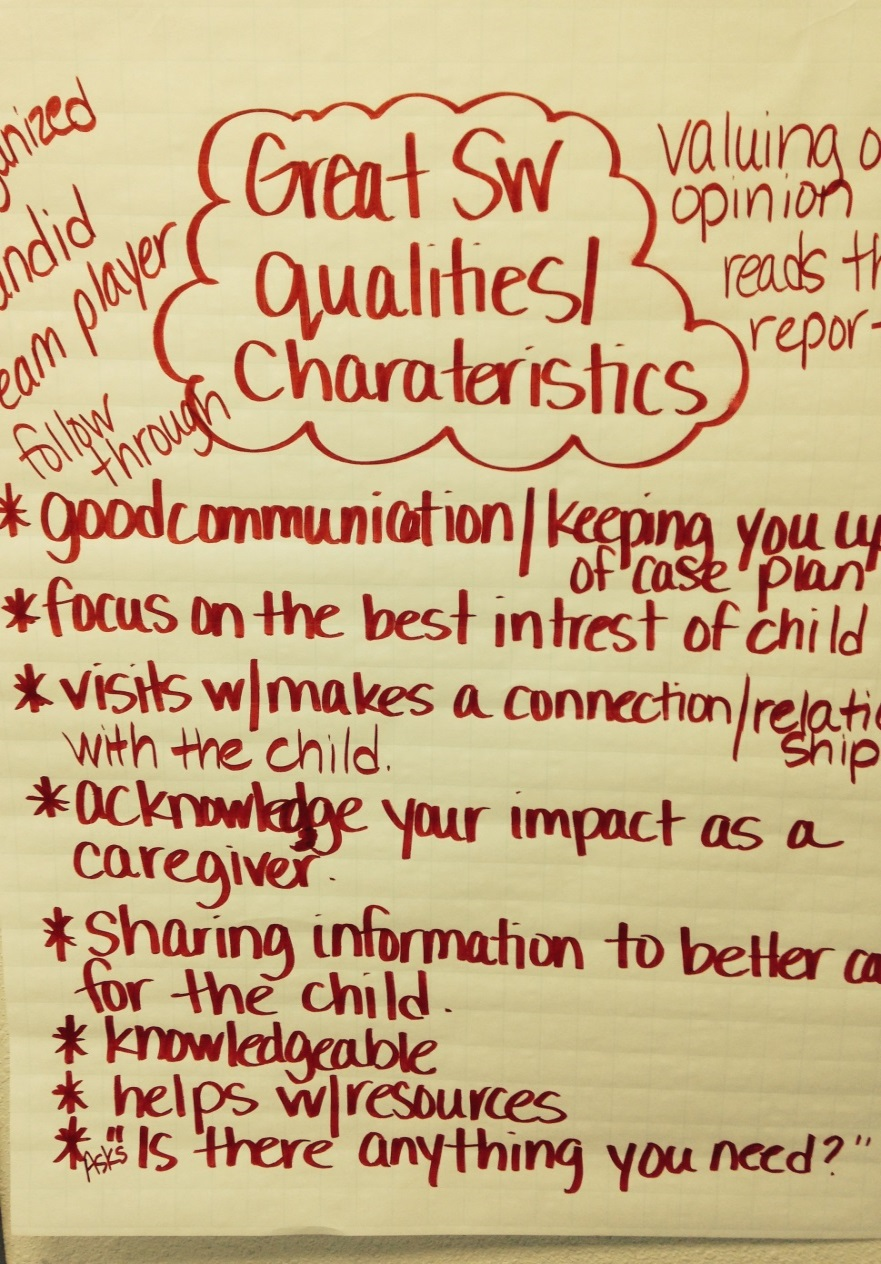 Great SW
Qualities/
Charateristics
anized
andid
eam player
follow
through
valuing o
opinion
reads th
repor
* good communication/keeping you up
of case plan
* focus on the best intrest of child
* visits w/makes a connection/relatio
ship
with the child.
* acknowledge your impact as a
caregiver.
* Sharing information to better ca
for the child.
* knowledgeable
* helps w/resources
* Asks "Is there anything you need?"